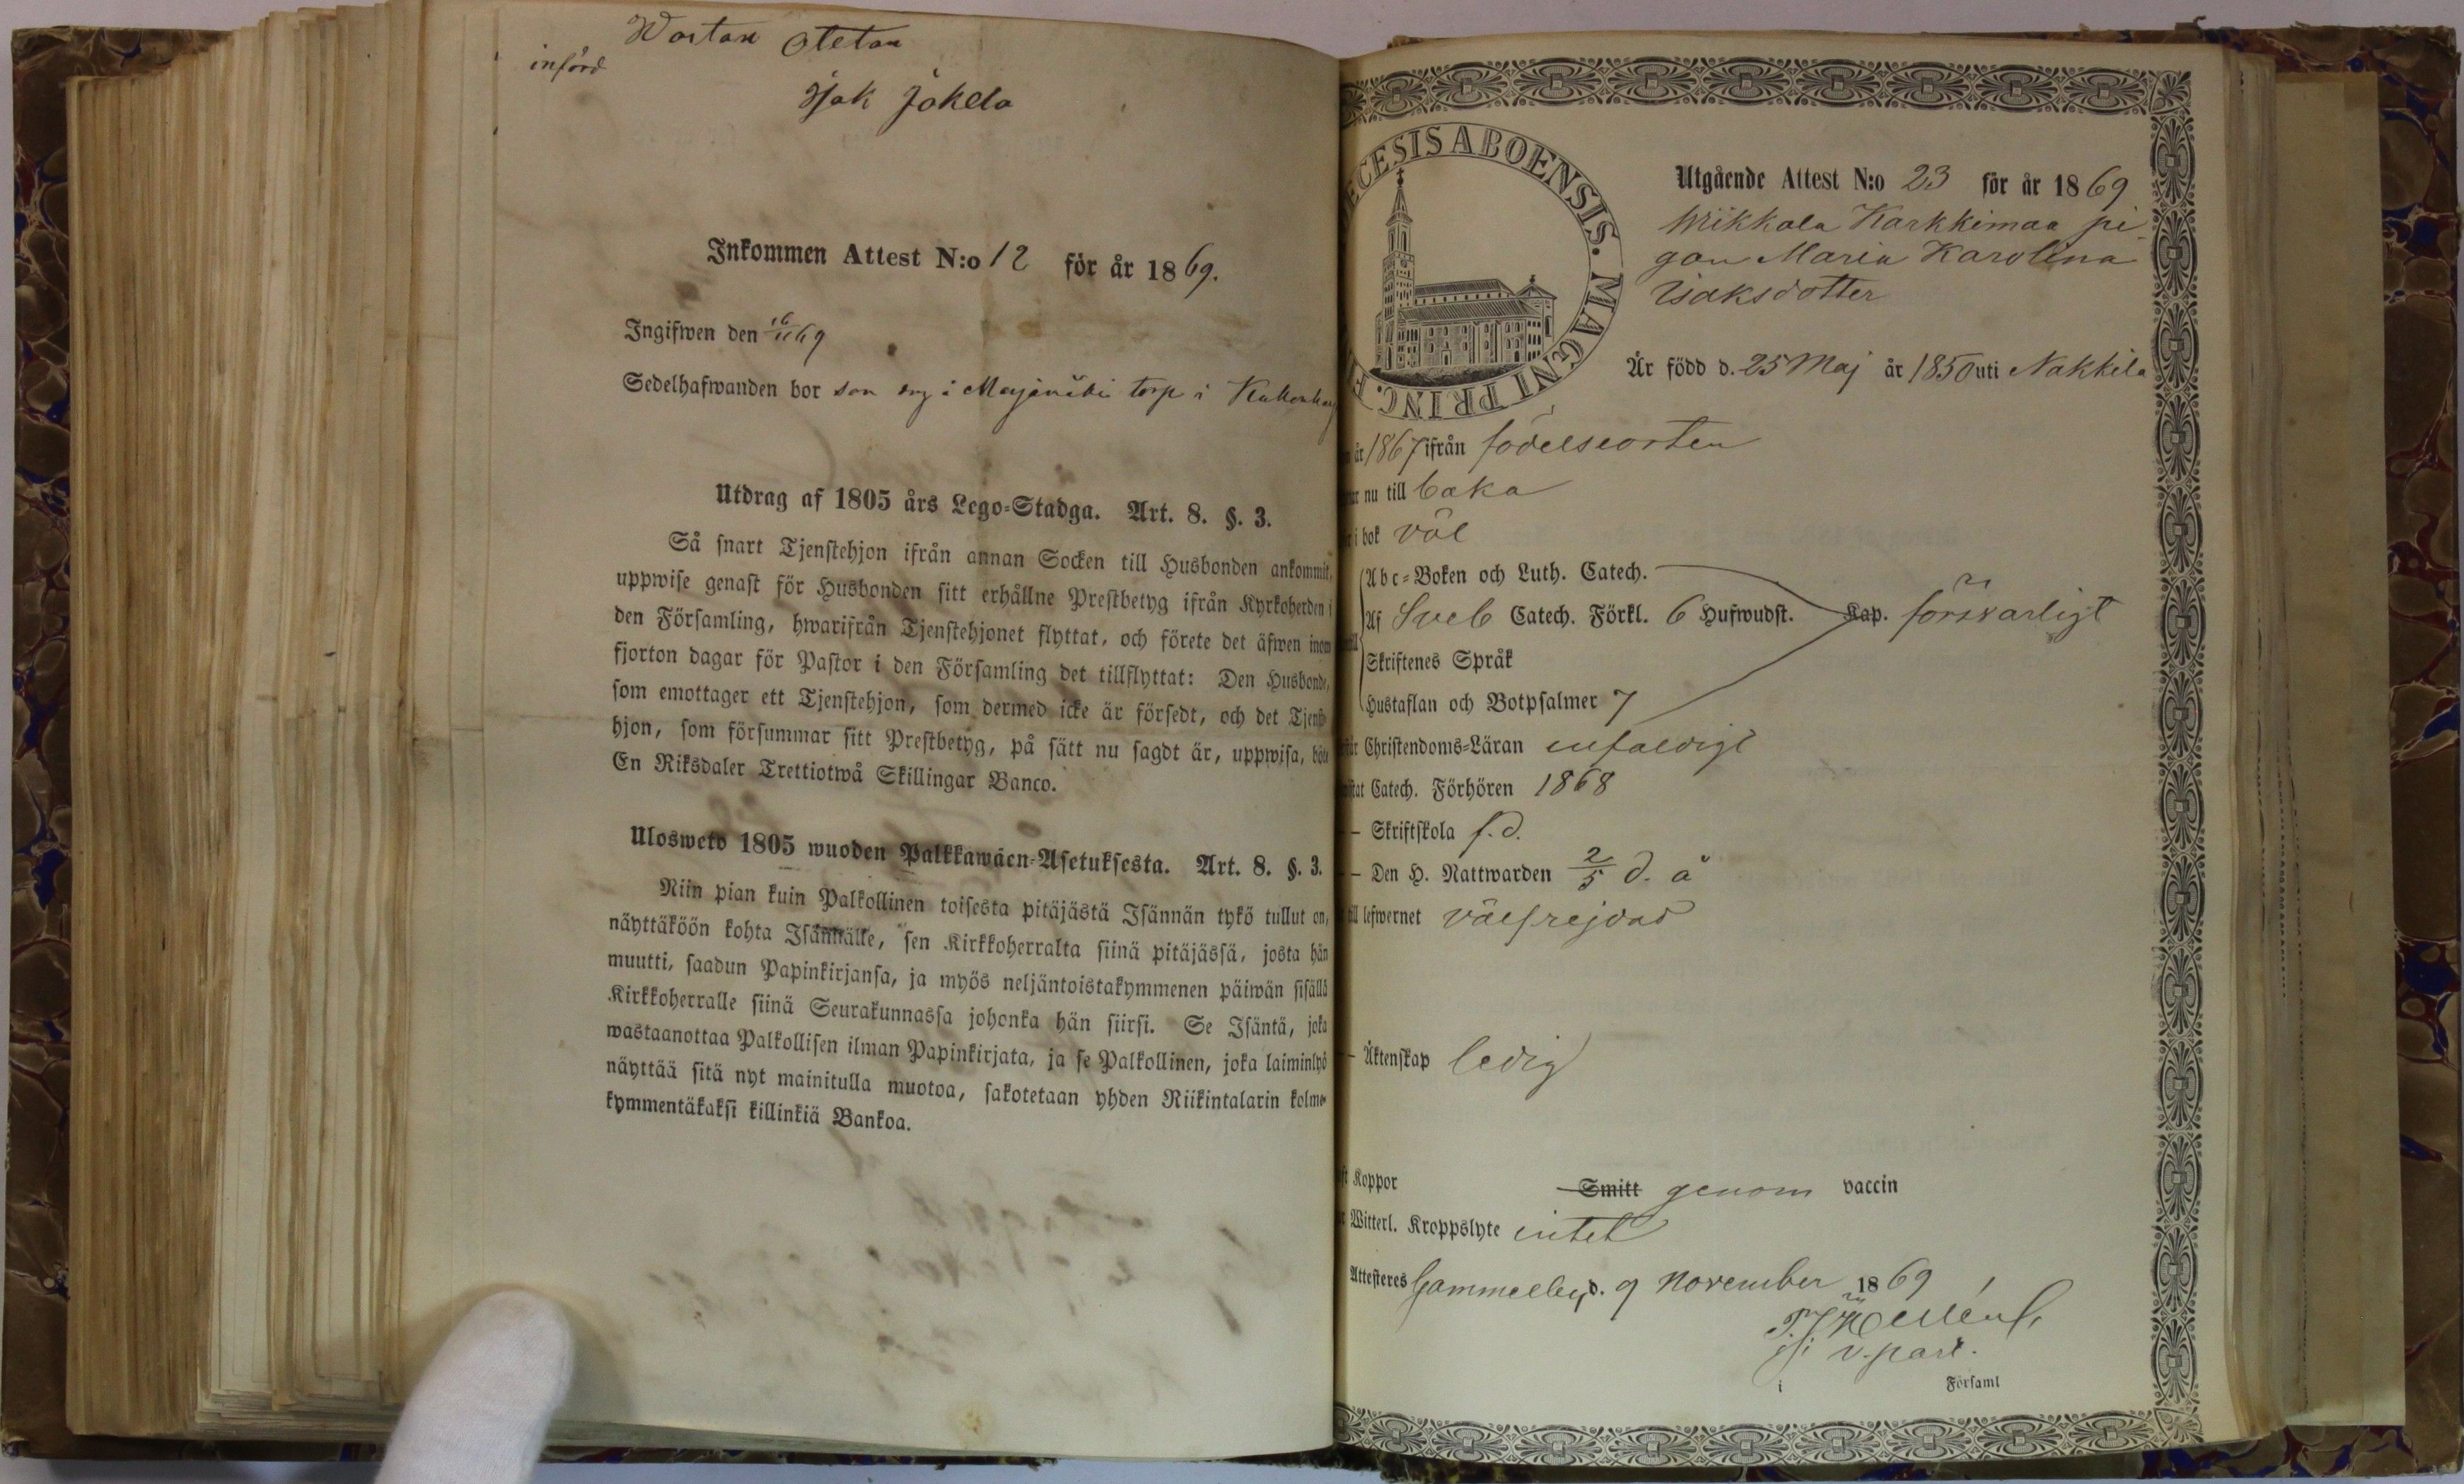 Wastan Otetan
införd
Isak Jokela
Inkommen Attest N:o 12 för år 1869.
Ingifwen den 16/11 69
Sedelhafwanden bor son i torp i
Utdrag af 1805 års Lego-Stadga. Art. 8. §. 3.
Så snart Tjenstehjon ifrån annan Socken till Husbonden ankommit,
uppwise genast för Husbonden sitt erhållne Prestbetyg ifrån Kyrkoherden i
den Församling, hwarifrån Tjenstehjonet flyttat, och förete det äfwen inom
fjorton dagar för Pastor i den Församling det tillflyttat: Den Husbonde,
som emottager ett Tjenstehjon, som dermed icke är försedt, och det Tjenste-
hjon, som försummar sitt Prestbetyg, på sätt nu sagdt är, uppwisa, böte
En Riksdaler Trettiotwå Skillingar Banco.
Ulosweto 1805 wuoden Palkkawäen-Asetuksesta. Art. 8. §. 3.
Niin pian kuin Palkollinen toisesta pitäjästä Isännän tykö tullut on,
näyttäköön kohta Isännälle, sen Kirkkoherralta siinä pitäjässä, josta hän
muutti, saadun Papinkirjansa, ja myös neljäntoistakymmenen päiwän sisällä
Kirkkoherralle siinä Seurakunnassa johonka hän siirsi. Se Isäntä, joka
wastaanottaa Palkollisen ilman Papinkirjata, ja se Palkollinen, joka laiminlyö
näyttää sitä nyt mainitulla muotoa, sakotetaan yhden Riikintalarin kolme-
kymmentäkaksi killinkiä Bankoa.
ECESIS ABOENSIS. MAGNI PRINC. F
Utgående Attest N:o 23 för år 1869
Wikkala Karkkimaa pi-
gan Maria Karolina
Isaksdotter
Är född d. 25 Maj år 1850 uti Nakkila
år 1867 ifrån födelseorten
nu till baka
i bok väl
Abc-Boken och Luth. Catech.
Af Sveb Catech. Förkl. 6 Hufwudst. Kap. försvarligt
Skriftenes Språk
Hustaflan och Botpsalmer 7
Christendoms-Läran enfaldigt
Catech. Förhören 1868
— Skriftskola f.d.
— Den H. Nattwarden 2/5 d. å
till lefwernet välfrejdad
— Äktenskap ledig
Koppor Smitt genom vaccin
Witterl. Kroppslyte intet
Attesteres Gammelby d. 9 November 1869
v. past.
i Församl